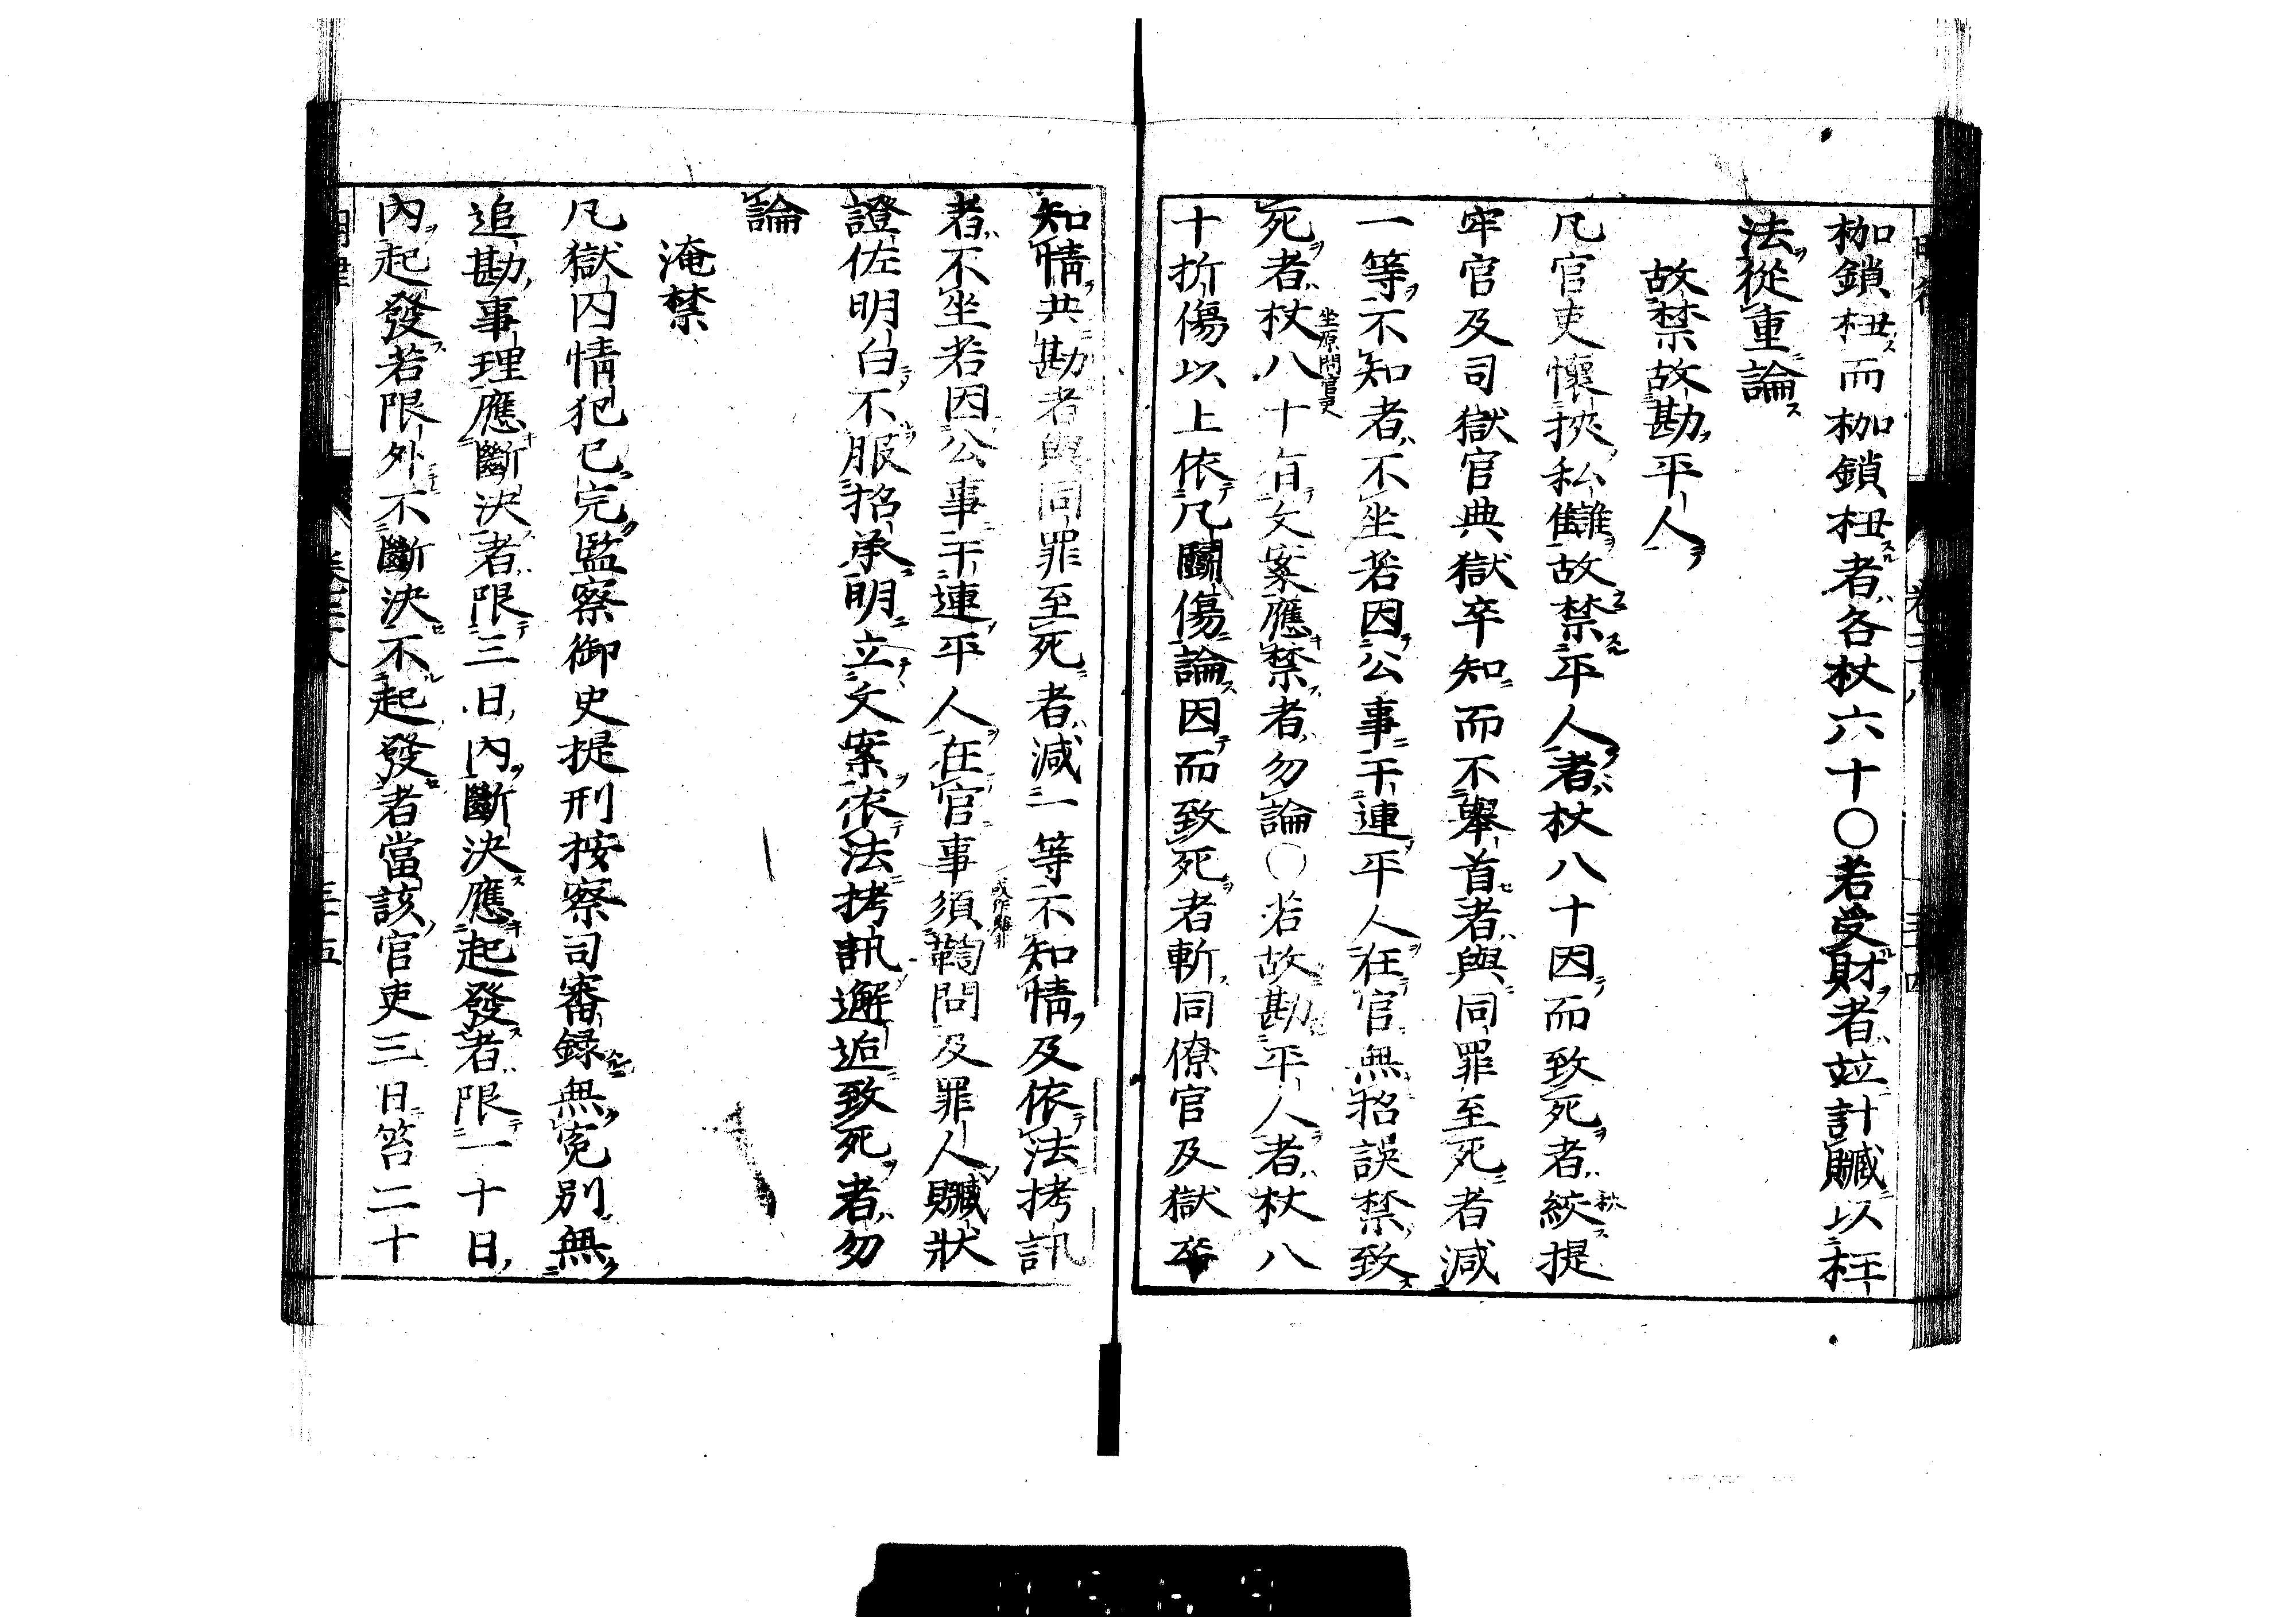 枷鎖杻而枷鎖杻者各杖六十〇若受財者竝計贓以枉
法從重論
故禁故勘平人
凡官吏懷挾私讎故禁平人者杖八十因而致死者絞提
牢官及司獄官典獄卒知而不舉首者與同罪至死者減
一等不知者不坐若因公事干連平人在官無招誤禁致
死者杖八十有文案應禁者勿論〇若故勘平人者杖八
坐原問官吏
十折傷以上依凡鬭傷論因而致死者斬同僚官及獄卒
知情共勘者與同罪至死者減一等不知情及依法拷訊
者不坐若因公事干連平人在官事須鞫問及罪人贓狀
證佐明白不服招承明立文案依法拷訊邂逅致死者勿
論
淹禁
凡獄囚情犯已完監察御史提刑按察司審録無寃別無
追勘事理應斷決者限三日內斷決應起發者限一十日
內起發若限外不斷決不起發者當該官吏三日笞二十